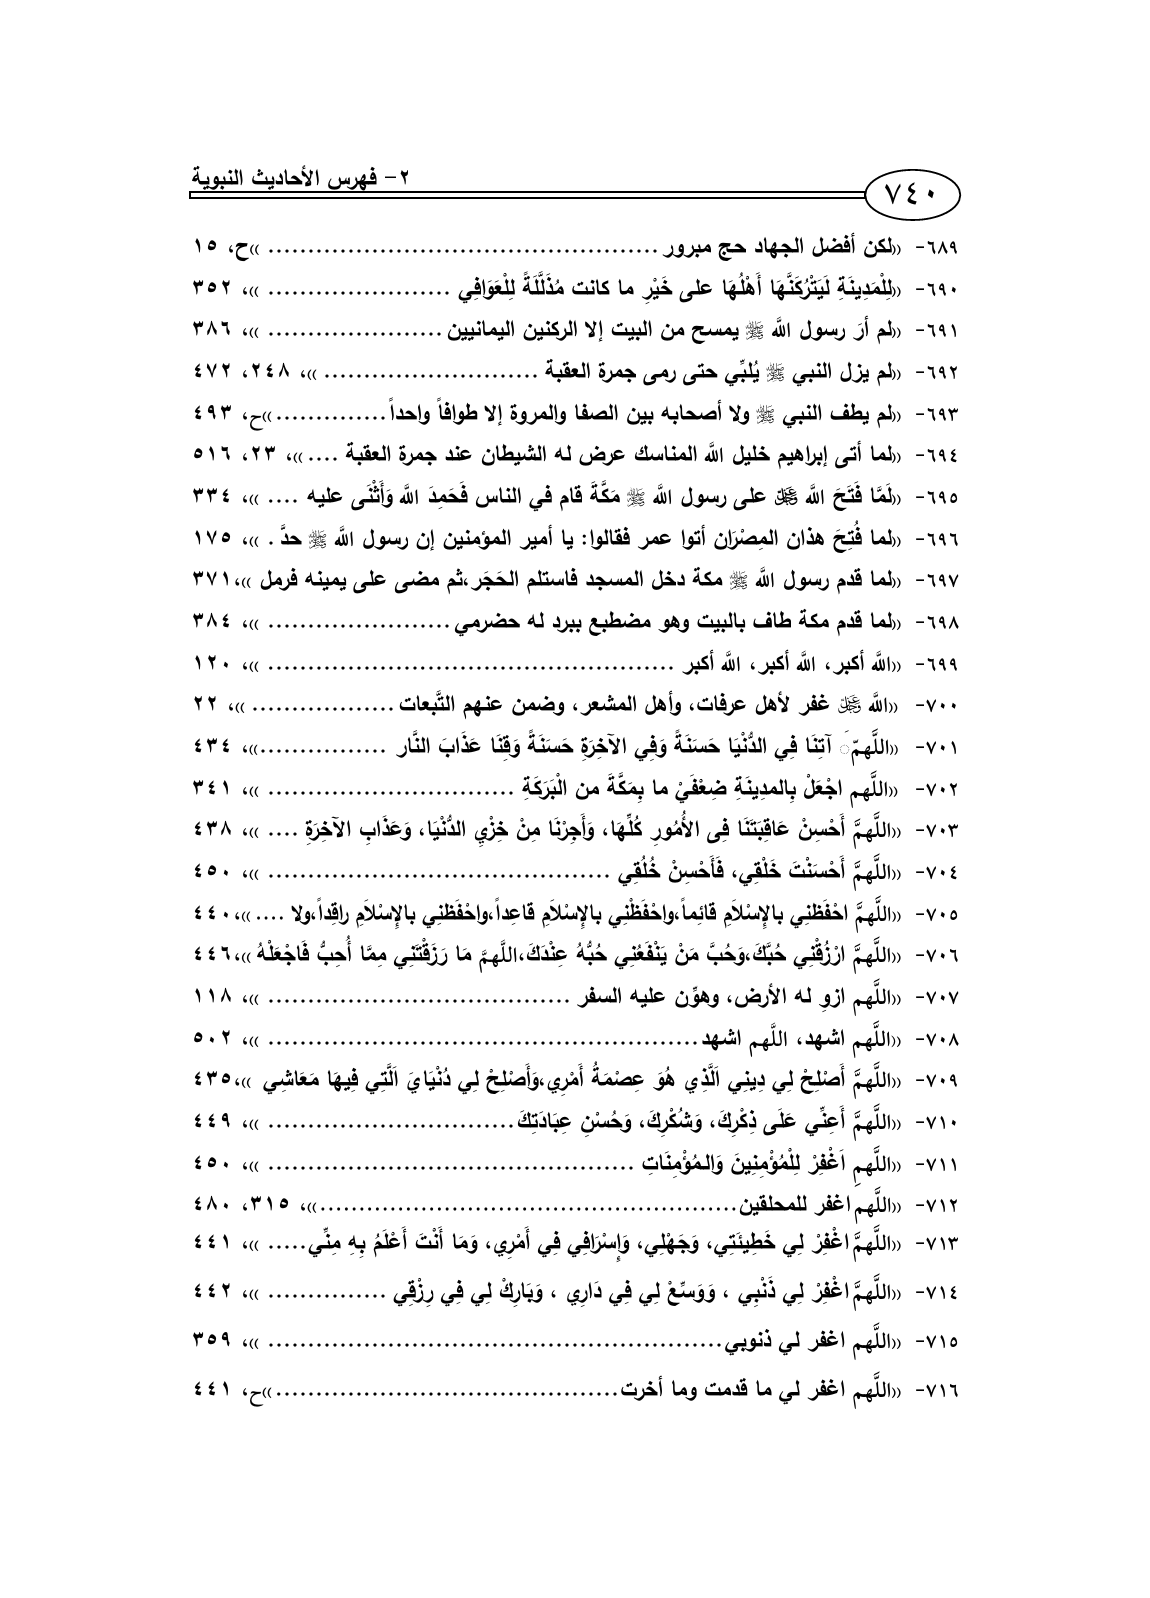 ٧٤٠
٢- فهرس الأحاديث النبوية
٦٨٩- ((لكن أفضل الجهاد حج مبرور ................................................ ))ح، ١٥
٦٩٠- ((لِلْمَدِينَةِ لَيَتْرُكَنَّهَا أَهْلُهَا على خَيْرِ ما كانت مُذَلَّلَةً لِلْعَوَافِي ....................... ))، ٣٥٢
٦٩١- ((لم أرَ رسول الله ﷺ يمسح من البيت إلا الركنين اليمانيين ...................... ))، ٣٨٦
٦٩٢- ((لم يزل النبي ﷺ يُلبِّي حتى رمى جمرة العقبة ........................... ))، ٢٤٨، ٤٧٢
٦٩٣- ((لم يطف النبي ﷺ ولا أصحابه بين الصفا والمروة إلا طوافاً واحداً..............))ح، ٤٩٣
٦٩٤- ((لما أتى إبراهيم خليل الله المناسك عرض له الشيطان عند جمرة العقبة ....))، ٢٣، ٥١٦
٦٩٥- ((لَمَّا فَتَحَ الله ﷻ على رسول الله ﷺ مَكَّةَ قام في الناس فَحَمِدَ الله وَأَثْنَى عليه .... ))، ٣٣٤
٦٩٦- ((لما فُتِحَ هذان المِصْرَان أتوا عمر فقالوا: يا أمير المؤمنين إن رسول الله ﷺ حدَّ . ))، ١٧٥
٦٩٧- ((لما قدم رسول الله ﷺ مكة دخل المسجد فاستلم الحَجَر،ثم مضى على يمينه فرمل ))،٣٧١
٦٩٨- ((لما قدم مكة طاف بالبيت وهو مضطبع ببرد له حضرمي ....................... ))، ٣٨٤
٦٩٩- ((الله أكبر، الله أكبر، الله أكبر .................................................. ))، ١٢٠
٧٠٠- ((الله ﷻ غفر لأهل عرفات، وأهل المشعر، وضمن عنهم التَّبعات .................. ))، ٢٢
٧٠١- ((اللَّهمّ َ آتِنَا فِي الدُّنْيَا حَسَنَةً وَفِي الآخِرَةِ حَسَنَةً وَقِنَا عَذَابَ النَّار ................))، ٤٣٤
٧٠٢- ((اللَّهم اجْعَلْ بِالمدِينَةِ ضِعْفَيْ ما بِمَكَّةَ من الْبَرَكَةِ .............................. ))، ٣٤١
٧٠٣- ((اللَّهمَّ أَحْسِنْ عَاقِبَتَنَا فِى الأُمُورِ كُلِّهَا، وَأَجِرْنَا مِنْ خِزْيِ الدُّنْيَا، وَعَذَابِ الآخِرَةِ .... ))، ٤٣٨
٧٠٤- ((اللَّهمَّ أَحْسَنْتَ خَلْقِي، فَأَحْسِنْ خُلُقِي .......................................... ))، ٤٥٠
٧٠٥- ((اللَّهمَّ احْفَظنِي بالإِسْلاَمِ قائِماً،واحْفَظْنِي بالإِسْلاَمِ قاعِداً،واحْفَظنِي بالإِسْلاَمِ راقِداً،ولا ....))،٤٤٠
٧٠٦- ((اللَّهمَّ ارْزُقْنِي حُبَّكَ،وَحُبَّ مَنْ يَنْفَعُنِي حُبُّهُ عِنْدَكَ،اللَّهمَّ مَا رَزَقْتَنِي مِمَّا أُحِبُّ فَاجْعَلْهُ ))،٤٤٦
٧٠٧- ((اللَّهم ازوِ له الأرض، وهوِّن عليه السفر ...................................... ))، ١١٨
٧٠٨- ((اللَّهم اشهد، اللَّهم اشهد...................................................... ))، ٥٠٢
٧٠٩- ((اللَّهمَّ أَصْلِحْ لِي دِينِي الَّذِي هُوَ عِصْمَةُ أَمْرِي،وَأَصْلِحْ لِي دُنْيَايَ الَّتِي فِيهَا مَعَاشِي ))،٤٣٥
٧١٠- ((اللَّهمَّ أَعِنِّي عَلَى ذِكْرِكَ، وَشُكْرِكَ، وَحُسْنِ عِبَادَتِكَ............................... ))، ٤٤٩
٧١١- ((اللَّهمِ اَغْفِرْ لِلْمُؤْمِنِينَ وَالمُؤْمِنَاتِ ............................................. ))، ٤٥٠
٧١٢- ((اللَّهم اغفر للمحلقين.....................................................))، ٣١٥، ٤٨٠
٧١٣- ((اللَّهمَّ اغْفِرْ لِي خَطِيئَتِي، وَجَهْلِي، وَإِسْرَافِي فِي أَمْرِي، وَمَا أَنْتَ أَعْلَمُ بِهِ مِنِّي..... ))، ٤٤١
٧١٤- ((اللَّهمَّ اغْفِرْ لِي ذَنْبِي ، وَوَسِّعْ لِي فِي دَارِي ، وَبَارِكْ لِي فِي رِزْقِي ............... ))، ٤٤٢
٧١٥- ((اللَّهم اغفر لي ذنوبي......................................................... ))، ٣٥٩
٧١٦- ((اللَّهم اغفر لي ما قدمت وما أخرت...........................................))ح، ٤٤١